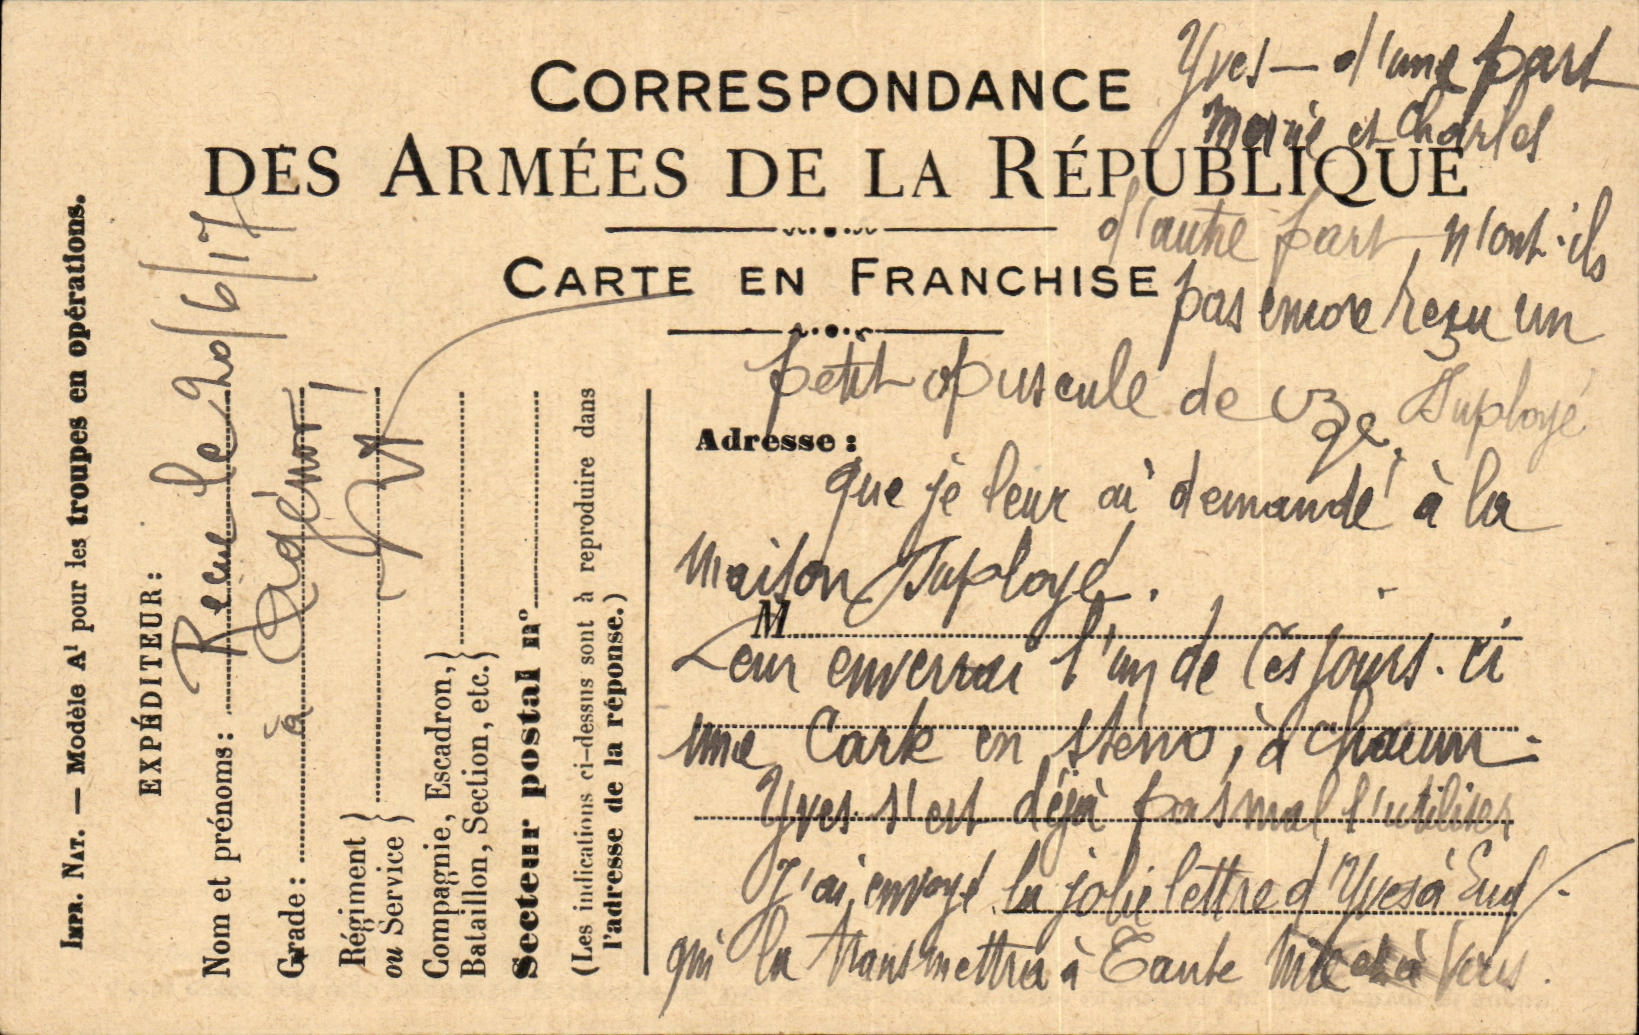 Yves — d'une part
Marie et Charles
CORRESPONDANCE
DES ARMÉES DE LA RÉPUBLIQUE
d'autre part, n'ont-ils
CARTE EN FRANCHISE
pas encore reçu un
petit opuscule de Duployé
Adresse :
que je leur ai demandé à la
maison Duployé.
M
Leur enverrai l'un de ces jours-ci
une Carte en sténo, à chacun.
Yves s'est déjà pas mal l'utiliser
J'ai envoyé la jolie lettre d'Yves à Eug.
qui la transmettra à Tante et à Vous.
Impr. Nat. — Modèle A¹ pour les troupes en opérations.
EXPÉDITEUR :
Reçue le 20/6/17
Nom et prénoms :
à Agénor
Grade :
Régiment
ou Service }
Compagnie, Escadron,
Bataillon, Section, etc. }
Secteur postal n°
(Les indications ci-dessus sont à reproduire dans
l'adresse de la réponse.)